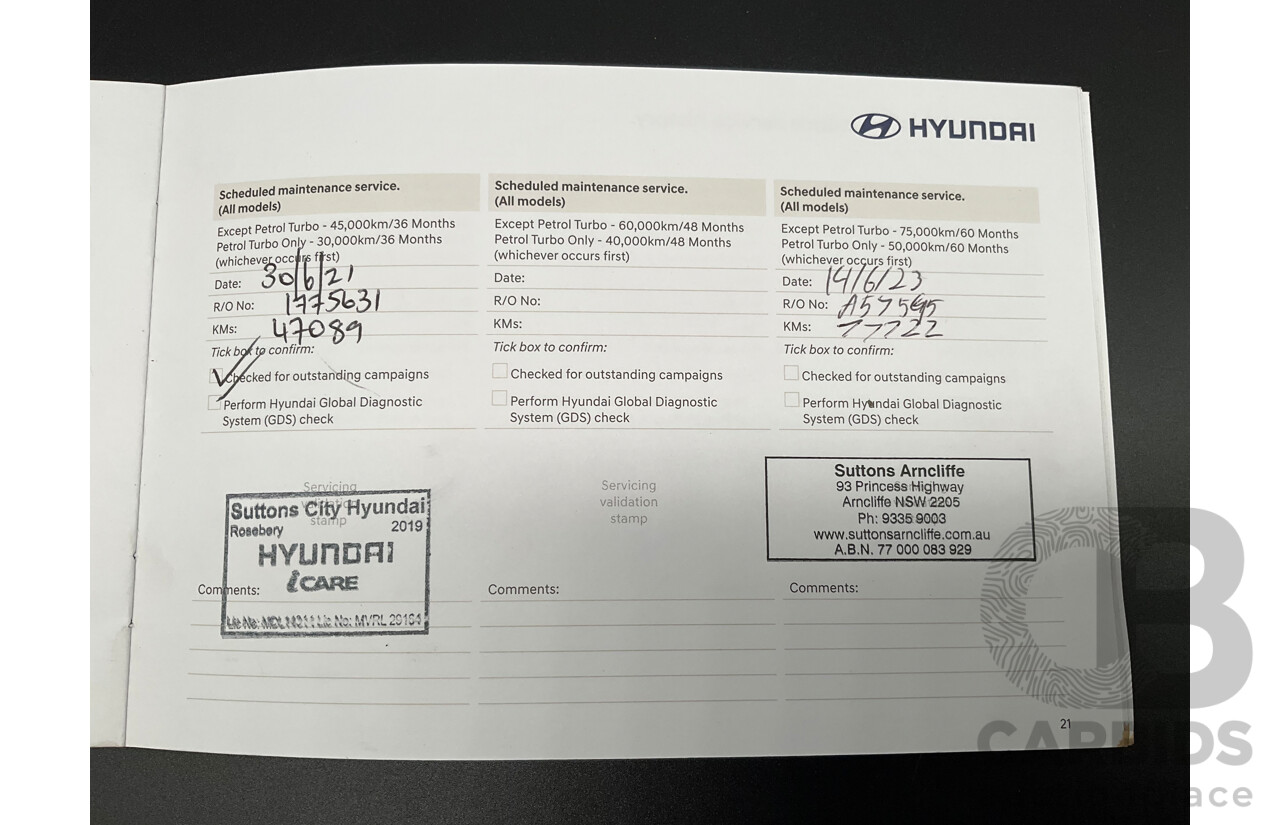 HYUNDAI
Scheduled maintenance service.
(All models)
Except Petrol Turbo - 45,000km/36 Months
Petrol Turbo Only - 30,000km/36 Months
(whichever occurs first)
Date: 30/6/21
R/O No: 1775631
KMs: 47089
Tick box to confirm:
Checked for outstanding campaigns
Perform Hyundai Global Diagnostic
System (GDS) check
Servicing
validation
stamp
Suttons City Hyundai
Rosebery 2019
HYUNDAI
iCARE
Comments:
Scheduled maintenance service.
(All models)
Except Petrol Turbo - 60,000km/48 Months
Petrol Turbo Only - 40,000km/48 Months
(whichever occurs first)
Date:
R/O No:
KMs:
Tick box to confirm:
Checked for outstanding campaigns
Perform Hyundai Global Diagnostic
System (GDS) check
Servicing
validation
stamp
Comments:
Scheduled maintenance service.
(All models)
Except Petrol Turbo - 75,000km/60 Months
Petrol Turbo Only - 50,000km/60 Months
(whichever occurs first)
Date: 14/6/23
R/O No:
KMs: 77722
Tick box to confirm:
Checked for outstanding campaigns
Perform Hyundai Global Diagnostic
System (GDS) check
Suttons Arncliffe
93 Princess Highway
Arncliffe NSW 2205
Ph: 9335 9003
www.suttonsarncliffe.com.au
A.B.N. 77 000 083 929
Comments:
21